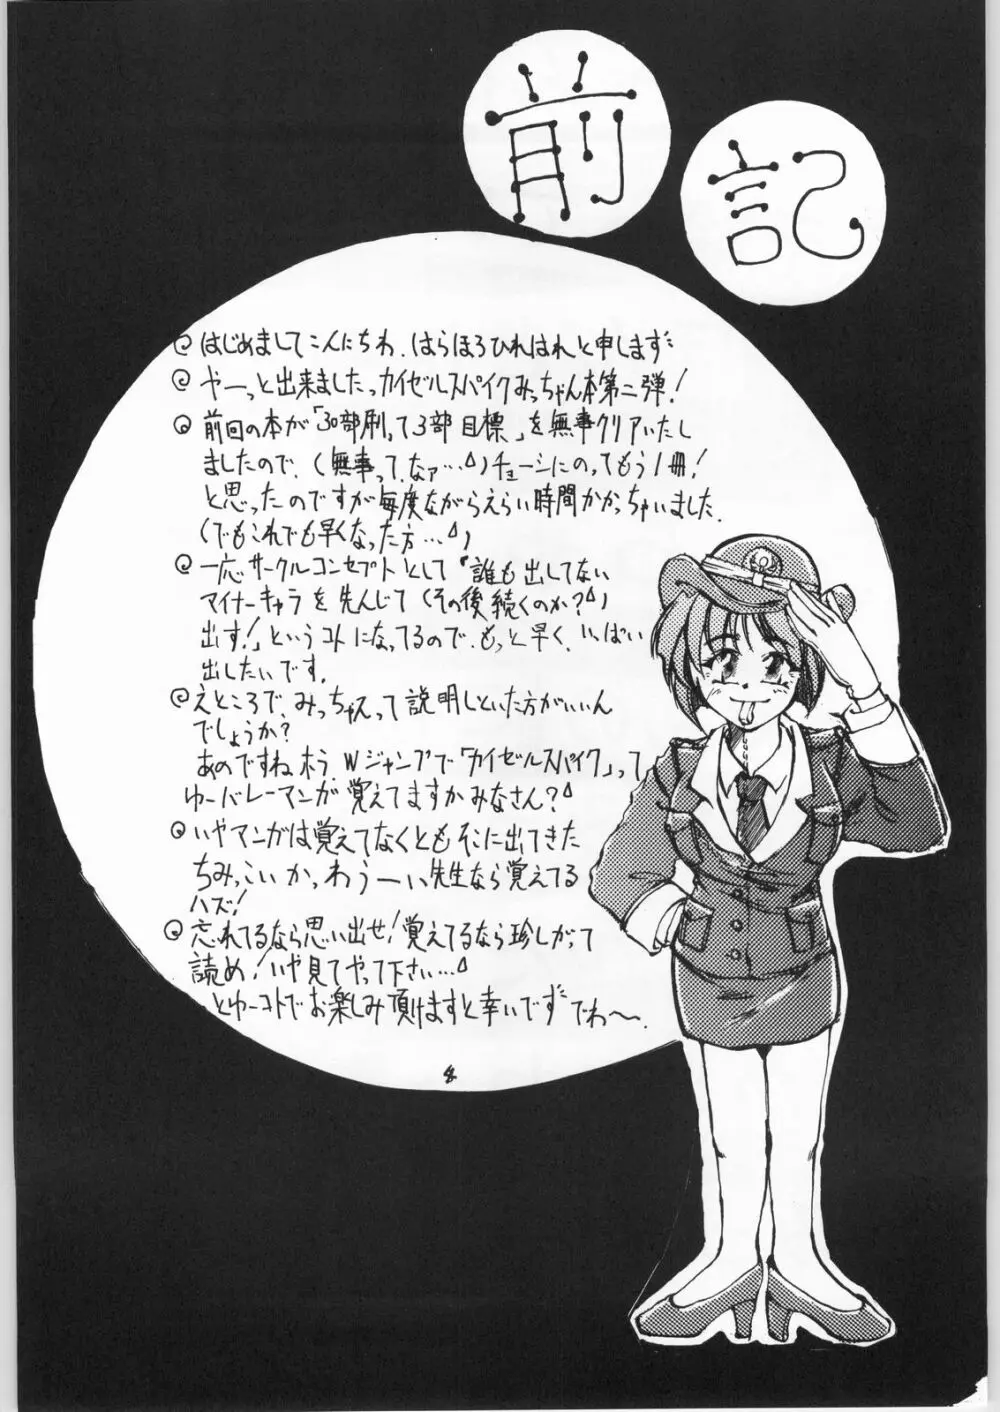 前記
はじめましてこんにちわ、はらほろひれはれと申しますﾞ
やーっと出来ましたっカイゼルスパイクみっちゃん本第二弾!
前回の本が「30部刷って3部目標」を無事クリアいたし
ましたので、(無事って、なァ…)チョーシにのってもう1冊!
と思ったのですが毎度ながらえらい時間かかっちゃいました
(でもこれでも早くなった方…)
一応サークルコンセプトとして「誰も出してない
マイナーキャラを先んじて(その後続くのか?)
出す!」というコトになってるので、もっと早く、いっぱい
出したいです。
えところで、みっちゃんって説明しといた方がいいん
でしょうか?
あのですねホラ、Wジャンプで「カイゼルスパイク」って
ゆーバレーマンガ覚えてますかみなさん?
いやマンガは覚えてなくともそこに出てきた
ちみっこいかっわうーい先生なら覚えてる
ハズ!
忘れてるなら思い出せ!覚えてるなら珍しがって
読め!いや見てやって下さい…
とゆーコトでお楽しみ頂けますと幸いですﾞでわ〜.